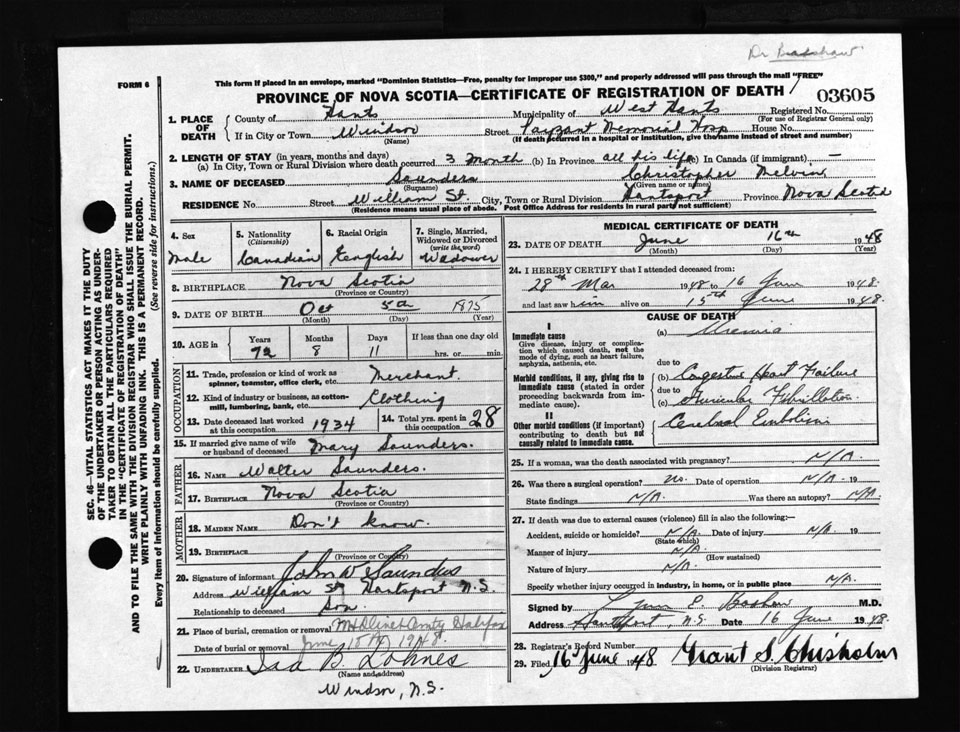 Dr Bradshaw
FORM 6
This form if placed in an envelope, marked "Dominion Statistics—Free, penalty for improper use $300," and properly addressed will pass through the mail "FREE"
PROVINCE OF NOVA SCOTIA—CERTIFICATE OF REGISTRATION OF DEATH
03605
1. PLACE OF DEATH
County of Hants Municipality of West Hants Registered No.
(For use of Registrar General only)
If in City or Town Windsor Street Payzant Memorial Hosp House No.
(Name) (If death occurred in a hospital or institution, give the name instead of street and number)
2. LENGTH OF STAY (in years, months and days)
(a) In City, Town or Rural Division where death occurred 3 Month (b) In Province all his life (c) In Canada (if immigrant) —
3. NAME OF DECEASED Saunders Christopher Melvin
(Surname) (Given name or names)
RESIDENCE No. Street William St City, Town or Rural Division Hantsport Province Nova Scotia
(Residence means usual place of abode. Post Office Address for residents in rural parts not sufficient)
4. Sex Male
5. Nationality (Citizenship) Canadian
6. Racial Origin English
7. Single, Married, Widowed or Divorced (write the word) Widower
8. BIRTHPLACE Nova Scotia
(Province or Country)
9. DATE OF BIRTH Oct 5th 1875
(Month) (Day) (Year)
10. AGE in Years Months Days If less than one day old
72 8 11 hrs. or min.
OCCUPATION
11. Trade, profession or kind of work as spinner, teamster, office clerk, etc. Merchant
12. Kind of industry or business, as cotton-mill, lumbering, bank, etc. Clothing
13. Date deceased last worked at this occupation 1934
14. Total yrs. spent in this occupation 28
15. If married give name of wife or husband of deceased Mary Saunders.
FATHER
16. NAME Walter Saunders.
17. BIRTHPLACE Nova Scotia
MOTHER
18. MAIDEN NAME Don't know.
19. BIRTHPLACE
(Province or Country)
20. Signature of informant John W Saunders
Address William St Hantsport N.S.
Relationship to deceased Son.
21. Place of burial, cremation or removal Mt Olivet Halifax
Date of burial or removal June 18th 1948.
22. UNDERTAKER Ira B Lohnes
(Name and address)
Windsor, N.S.
MEDICAL CERTIFICATE OF DEATH
23. DATE OF DEATH June 16th 1948
(Month) (Day)
24. I HEREBY CERTIFY that I attended deceased from:
28th Mar 1948 to 16 June 1948.
and last saw him alive on 15th June 1948.
CAUSE OF DEATH
I
Immediate cause
Give disease, injury or complication which caused death, not the mode of dying, such as heart failure, asphyxia, asthenia, etc.
(a) Uremia
due to
Morbid conditions, if any, giving rise to immediate cause (stated in order proceeding backwards from immediate cause).
(b) Congestive Heart Failure
due to
(c) Auricular Fibrillation
II
Other morbid conditions (if important) contributing to death but not causally related to immediate cause.
Cerebral Embolism
25. If a woman, was the death associated with pregnancy? N/A.
26. Was there a surgical operation? no. Date of operation N/A. 19
State findings N/A. Was there an autopsy? N/A.
27. If death was due to external causes (violence) fill in also the following:—
Accident, suicide or homicide? N/A. Date of injury N/A. 19
(State which)
Manner of injury N/A.
(How sustained)
Nature of injury N/A.
Specify whether injury occurred in industry, in home, or in public place N/A.
Signed by M.D.
Address Hantsport, N.S. Date 16 June 1948.
28. Registrar's Record Number
29. Filed 16 June 1948 Grant S. Chisholm
(Division Registrar)
SEC. 46—VITAL STATISTICS ACT MAKES IT THE DUTY OF THE UNDERTAKER OR PERSON ACTING AS UNDERTAKER TO OBTAIN ALL THE PARTICULARS REQUIRED IN THE "CERTIFICATE OF REGISTRATION OF DEATH" AND TO FILE THE SAME WITH THE DIVISION REGISTRAR WHO SHALL ISSUE THE BURIAL PERMIT.
WRITE PLAINLY WITH UNFADING INK. THIS IS A PERMANENT RECORD.
Every item of information should be carefully supplied. (See reverse side for instructions.)